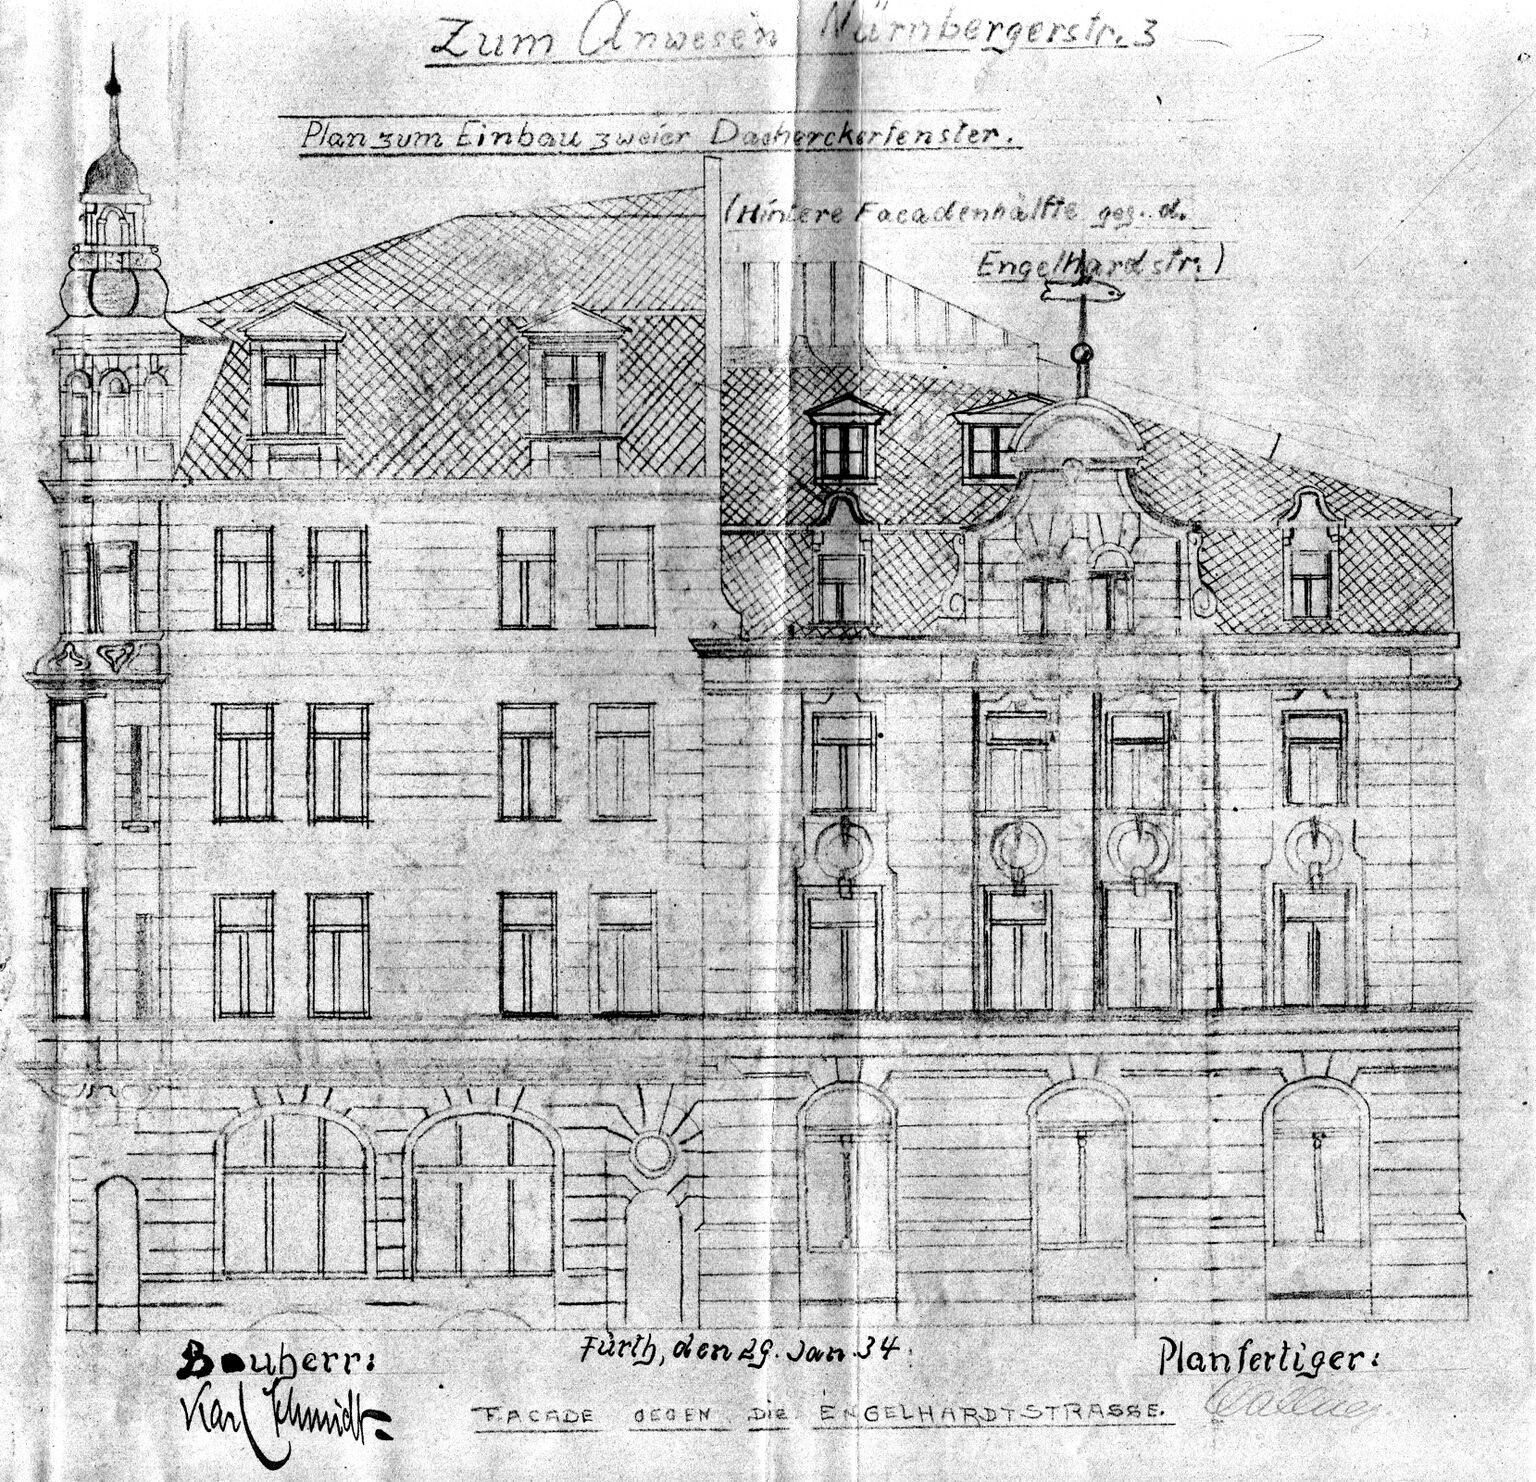 Zum Anwesen Nürnbergerstr. 3
Plan zum Einbau zweier Dacherckerfenster.
(Hintere Facadenhälfte geg. d.
Engelhardstr.)
Bauherr:
Karl Schmidt
Fürth, den 29. Jan. 34.
Planfertiger:
FACADE GEGEN DIE ENGELHARDTSTRASSE.